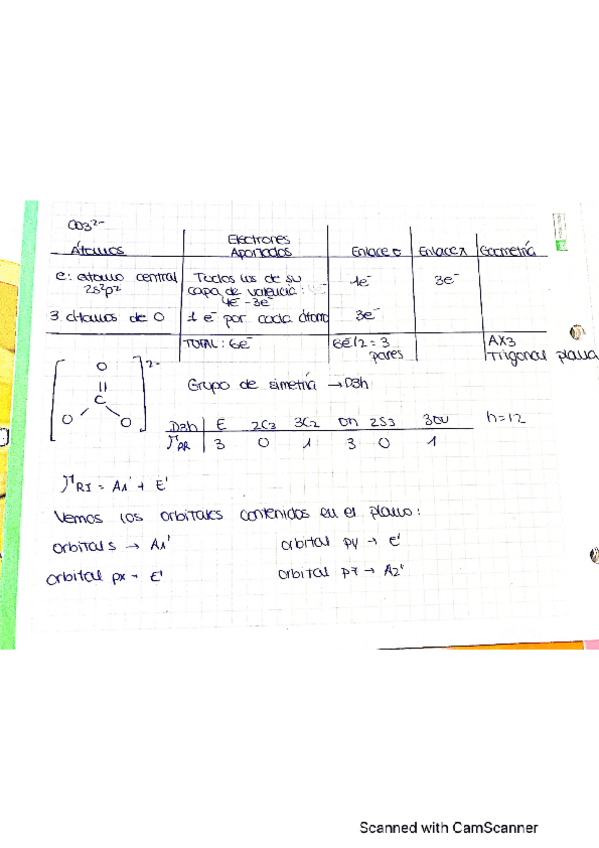 CO3²⁻
Átomos | Electrones Aportados | Enlace σ | Enlace π | Geometría
C: átomo central 2s²p² | Todos los de su capa de valencia: 4e⁻ - 3e⁻ | 1e⁻ | 3e⁻
3 átomos de O | 1 e⁻ por cada átomo | 3e⁻
TOTAL: 6e⁻ | 6e⁻/2 = 3 pares | AX3 Trigonal plana
[O = C O O]²⁻
Grupo de simetría → D3h
D3h | E 2C3 3C2 σh 2S3 3σv h=12
ΓRR | 3 0 1 3 0 1
ΓRI = A1' + E'
Vemos los orbitales contenidos en el plano:
orbital s → A1' orbital py → E'
orbital px → E' orbital pz → A2'
Scanned with CamScanner